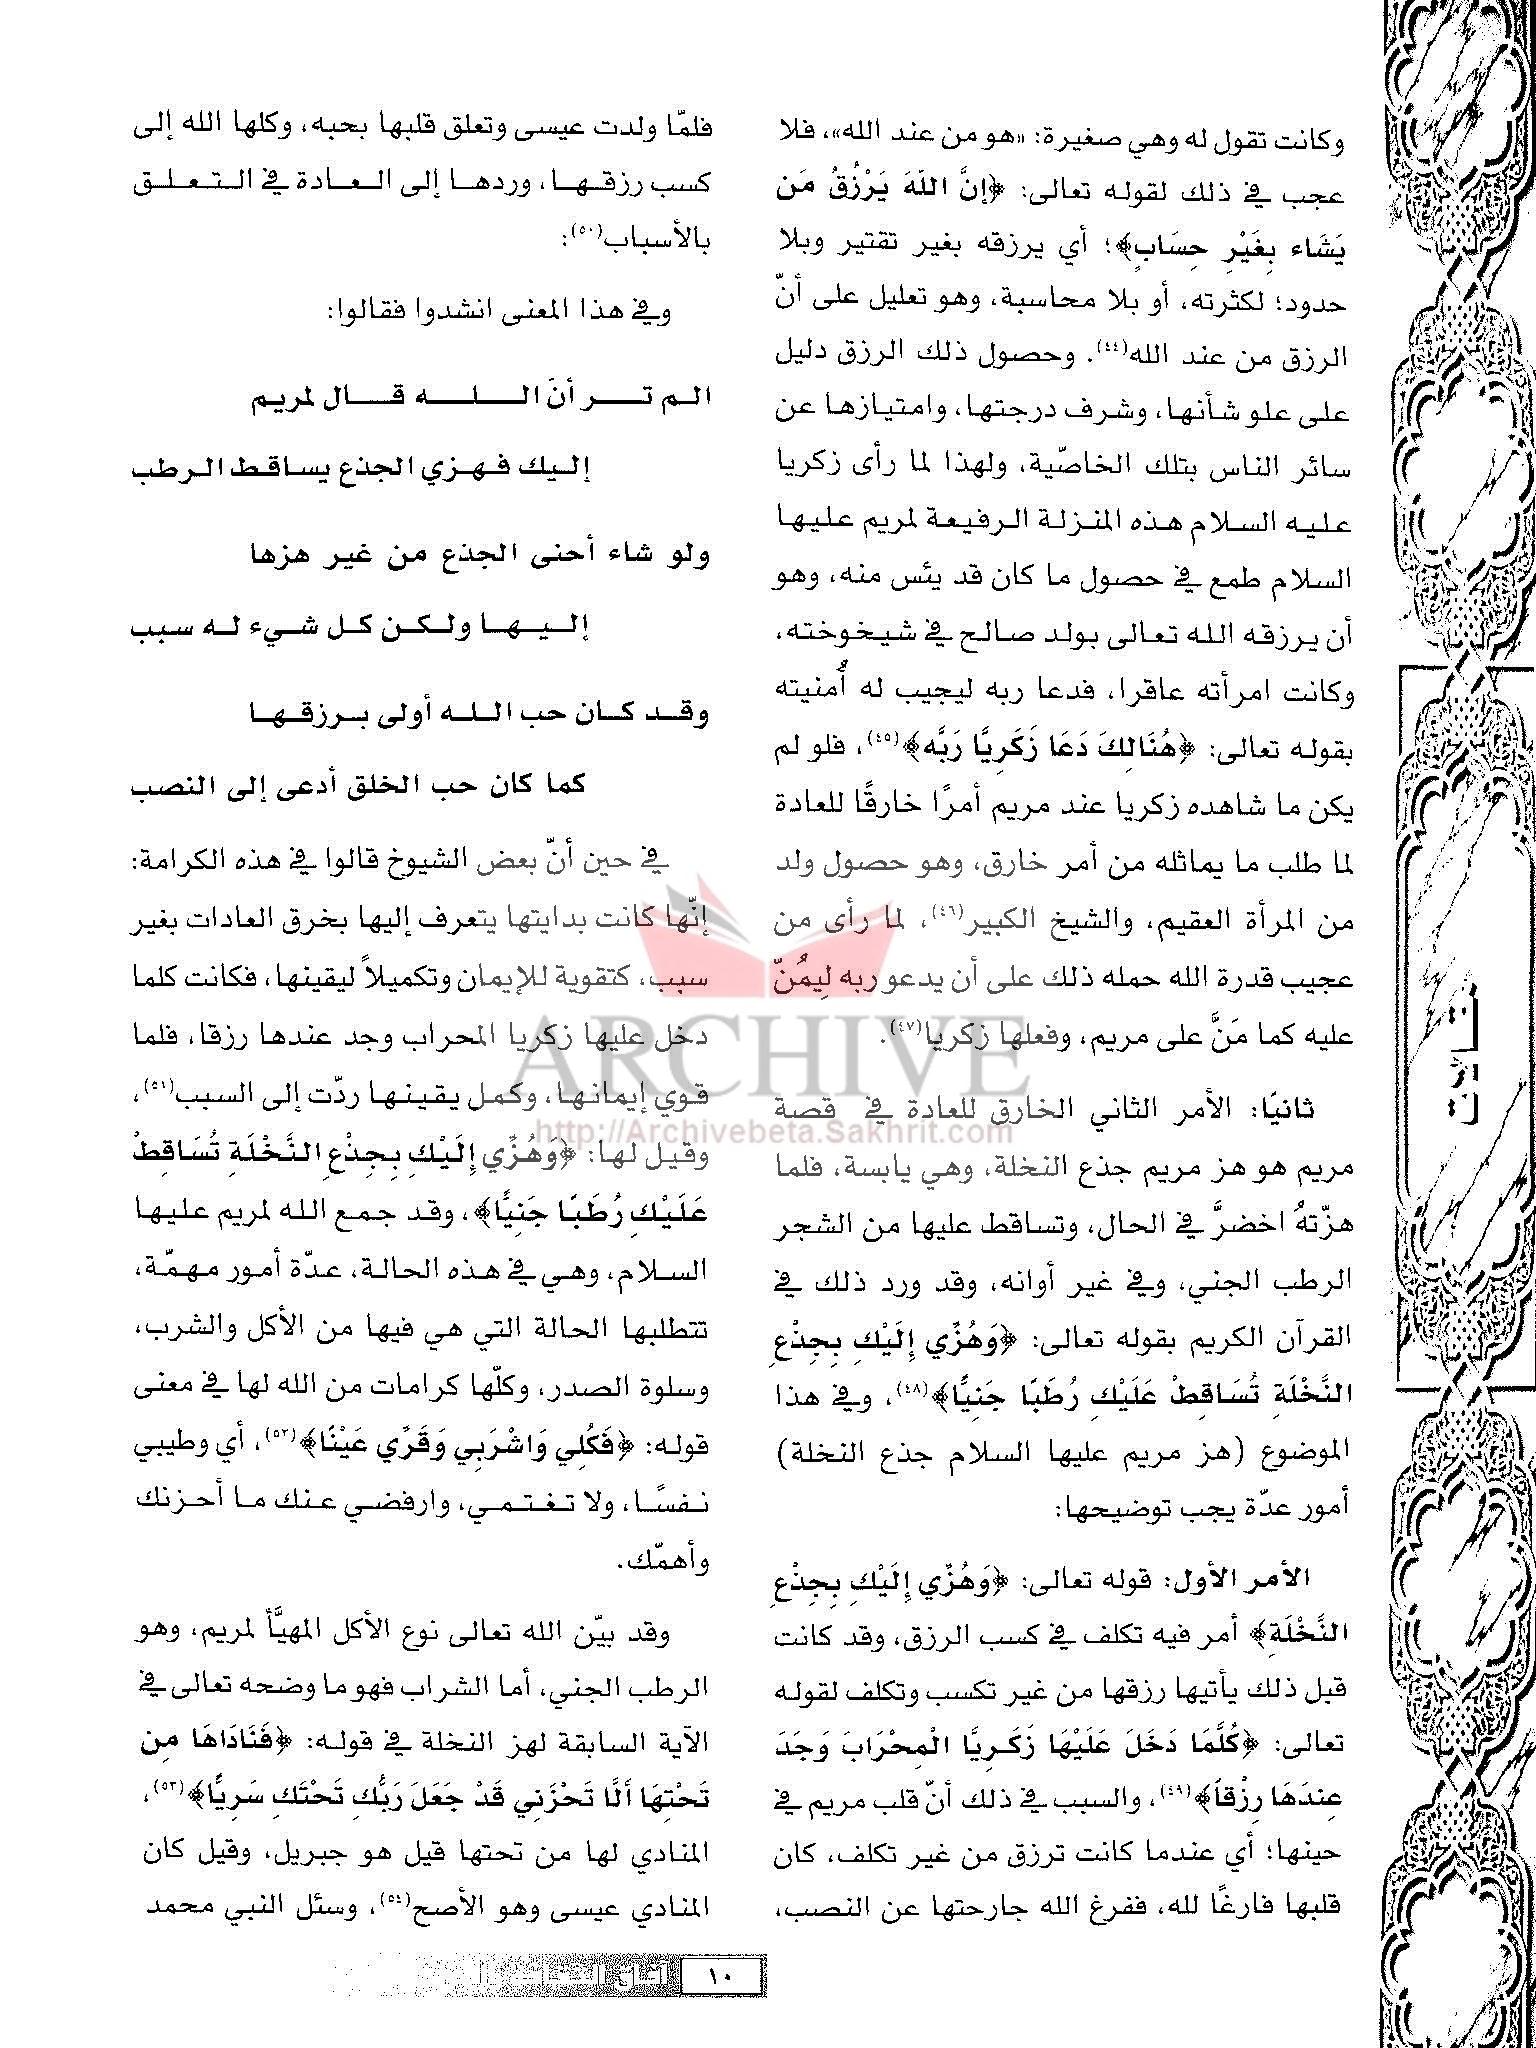 وكانت تقول له وهي صغيرة: «هو من عند الله»، فلا
عجب في ذلك لقوله تعالى: ﴿إنَّ اللّهَ يَرْزُقُ مَن
يَشَاء بِغَيْرِ حِسَابٍ﴾؛ أي يرزقه بغير تقتير وبلا
حدود؛ لكثرته، أو بلا محاسبة، وهو تعليل على أنّ
الرزق من عند الله(٤٤). وحصول ذلك الرزق دليل
على علو شأنها، وشرف درجتها، وامتيازها عن
سائر الناس بتلك الخاصّية، ولهذا لما رأى زكريا
عليه السلام هذه المنزلة الرفيعة لمريم عليها
السلام طمع في حصول ما كان قد يئس منه، وهو
أن يرزقه الله تعالى بولد صالح في شيخوخته،
وكانت امرأته عاقرا، فدعا ربه ليجيب له أُمنيته
بقوله تعالى: ﴿هُنَالِكَ دَعَا زَكَرِيَّا رَبَّه﴾(٤٥)، فلو لم
يكن ما شاهده زكريا عند مريم أمرًا خارقًا للعادة
لما طلب ما يماثله من أمر خارق، وهو حصول ولد
من المرأة العقيم، والشيخ الكبير(٤٦)، لما رأى من
عجيب قدرة الله حمله ذلك على أن يدعو ربه ليَمُنّ
عليه كما مَنَّ على مريم، وفعلها زكريا(٤٧).
ثانيًا: الأمر الثاني الخارق للعادة في قصة
مريم هو هز مريم جذع النخلة، وهي يابسة، فلما
هزّتهُ اخضرَّ في الحال، وتساقط عليها من الشجر
الرطب الجني، وفي غير أوانه، وقد ورد ذلك في
القرآن الكريم بقوله تعالى: ﴿وَهُزِّي إِلَيْكِ بِجِذْعِ
النَّخْلَةِ تُسَاقِطْ عَلَيْكِ رُطَبًا جَنِيًّا﴾(٤٨)، وفي هذا
الموضوع (هز مريم عليها السلام جذع النخلة)
أمور عدّة يجب توضيحها:
الأمر الأول: قوله تعالى: ﴿وَهُزِّي إِلَيْكِ بِجِذْعِ
النَّخْلَةِ﴾ أمر فيه تكلف في كسب الرزق، وقد كانت
قبل ذلك يأتيها رزقها من غير تكسب وتكلف لقوله
تعالى: ﴿كُلَّمَا دَخَلَ عَلَيْهَا زَكَرِيَّا الْمِحْرَابَ وَجَدَ
عِندَهَا رِزْقاً﴾(٤٩)، والسبب في ذلك أنّ قلب مريم في
حينها؛ أي عندما كانت ترزق من غير تكلف، كان
قلبها فارغًا لله، ففرغ الله جارحتها عن النصب،
فلمّا ولدت عيسى وتعلق قلبها بحبه، وكلها الله إلى
كسب رزقها، وردها إلى العادة في التعلق
بالأسباب(٥٠):
وفي هذا المعنى انشدوا فقالوا:
الم تر أنَ الله قال لمريم
إليك فهزي الجذع يساقط الرطب
ولو شاء أحنى الجذع من غير هزها
إليها ولكن كل شيء له سبب
وقد كان حب الله أولى برزقها
كما كان حب الخلق أدعى إلى النصب
في حين أنّ بعض الشيوخ قالوا في هذه الكرامة:
إنّها كانت بدايتها يتعرف إليها بخرق العادات بغير
سبب، كتقوية للإيمان وتكميلاً ليقينها، فكانت كلما
دخل عليها زكريا المحراب وجد عندها رزقا، فلما
قوي إيمانها، وكمل يقينها ردّت إلى السبب(٥١)،
وقيل لها: ﴿وَهُزِّي إِلَيْكِ بِجِذْعِ النَّخْلَةِ تُسَاقِطْ
عَلَيْكِ رُطَبًا جَنِيًّا﴾، وقد جمع الله لمريم عليها
السلام، وهي في هذه الحالة، عدّة أمور مهمّة،
تتطلبها الحالة التي هي فيها من الأكل والشرب،
وسلوة الصدر، وكلّها كرامات من الله لها في معنى
قوله: ﴿فَكُلِي وَاشْرَبِي وَقَرِّي عَيْنًا﴾(٥٢)، أي وطيبي
نفسًا، ولا تغتمي، وارفضي عنك ما أحزنك
وأهمّك.
وقد بيّن الله تعالى نوع الأكل المهيَّأ لمريم، وهو
الرطب الجني، أما الشراب فهو ما وضحه تعالى في
الآية السابقة لهز النخلة في قوله: ﴿فَنَادَاهَا مِن
تَحْتِهَا أَلَّا تَحْزَنِي قَدْ جَعَلَ رَبُّكِ تَحْتَكِ سَرِيًّا﴾(٥٣)،
المنادي لها من تحتها قيل هو جبريل، وقيل كان
المنادي عيسى وهو الأصح(٥٤)، وسئل النبي محمد
مقالات
ARCHIVE
http://Archivebeta.Sakhrit.com
١٠
آفاق الثقافة